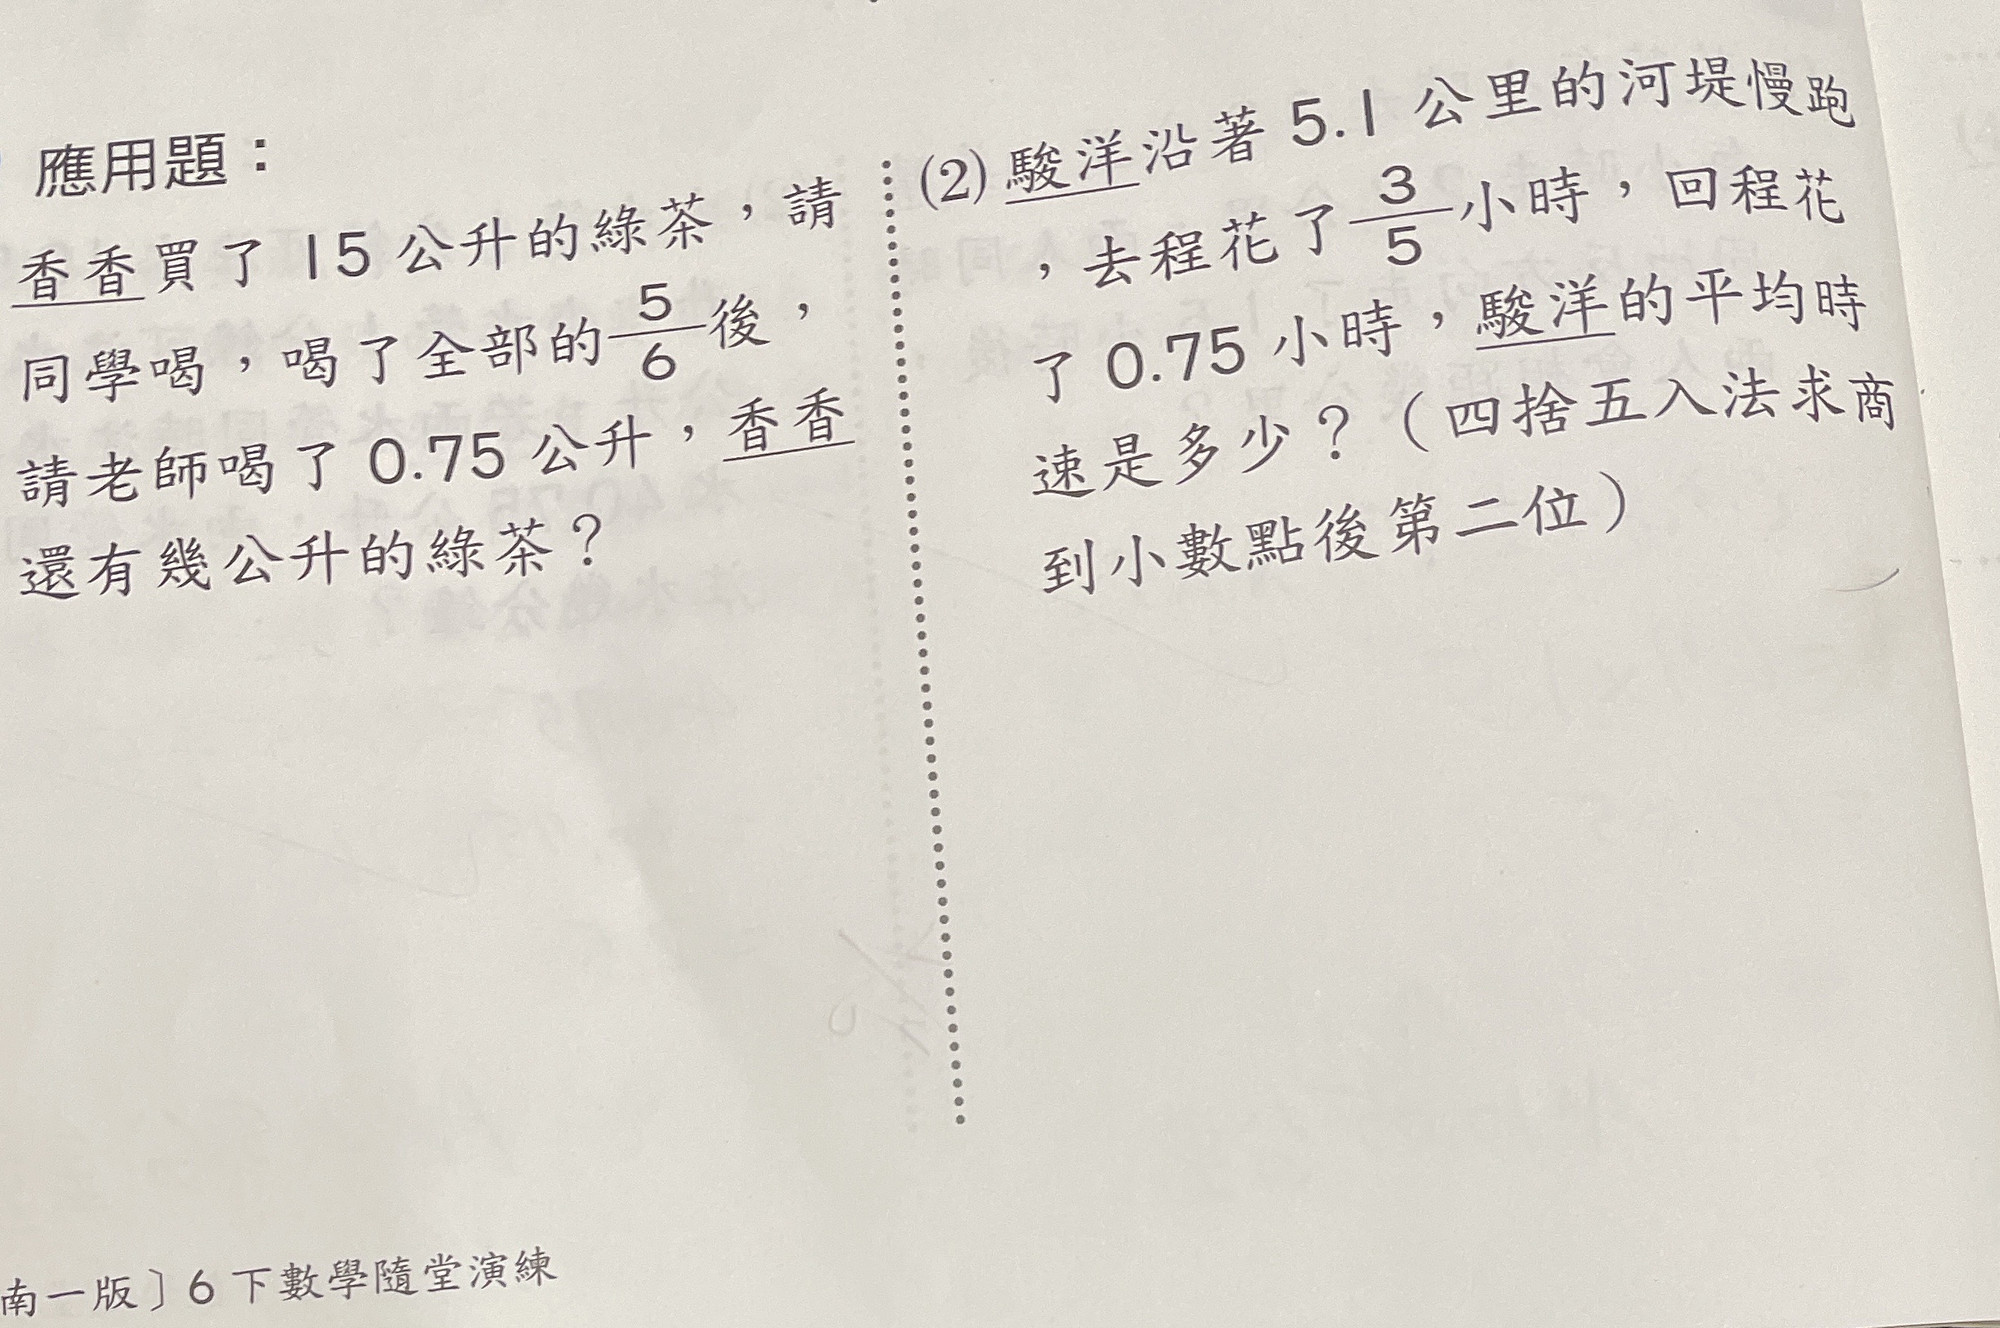 應用題：
香香買了 15 公升的綠茶，請
同學喝，喝了全部的5/6後，
請老師喝了 0.75 公升，香香
還有幾公升的綠茶？
(2) 駿洋沿著 5.1 公里的河堤慢跑
，去程花了3/5小時，回程花
了 0.75 小時，駿洋的平均時
速是多少？（四捨五入法求商
到小數點後第二位）
南一版〕6 下數學隨堂演練